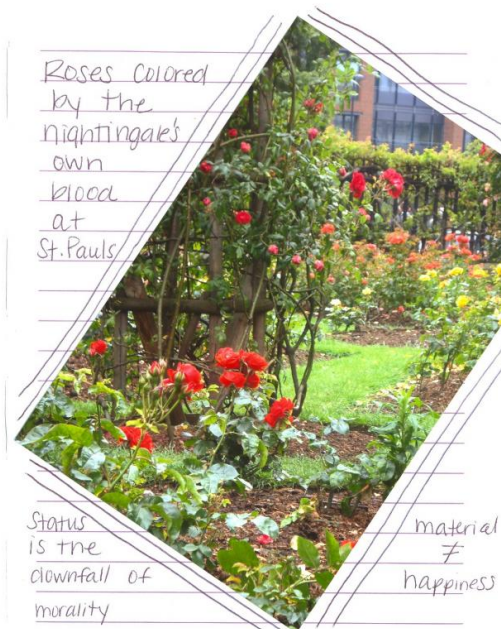 Roses colored
by the
nightingale's
own
blood
at
St. Pauls
Status
is the
downfall of
morality
material
≠
happiness